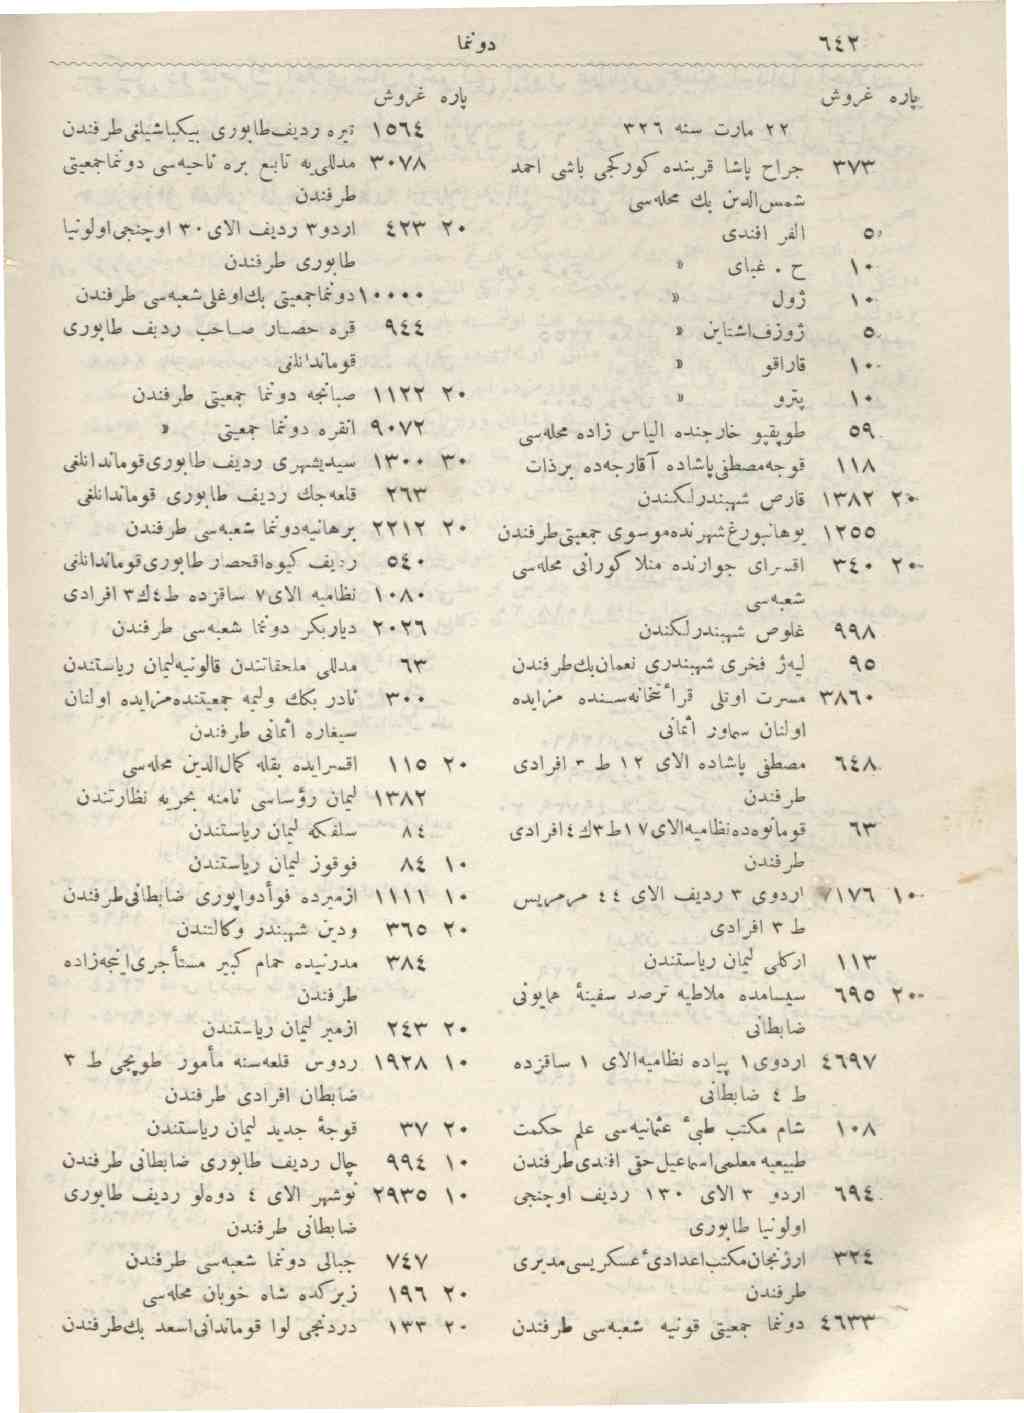 ٦٤٣
دوننما
پاره غروش
٢٢ مارت سنه ٣٢٦
٣٧٣ جراح پاشا قربنده كوركجی باشی احمد
شمس‌الدین بك محله‌سی
٥٠ الفر افندی
١٠ ح . غبای »
١٠ ژول »
٥٠ ژوزف‌اشتاین »
١٠ قاراقو »
١٠ پترو »
٥٩ طوپقپو خارجنده الیاس زاده محله‌سی
١١٨ قوجه‌مصطفی‌پاشاده آقارجه‌ده برذات
٢٠ ١٣٨٢ قارص شهبندرلكندن
١٢٥٥ یوهانبورغ‌شهرنده‌موسوی جمعیتی‌طرفندن
٢٠ ٣٤٠ اقسرای جوارنده منلا كورانی محله‌سی
شعبه‌سی
٩٩٨ غلوص شهبندرلكندن
٩٥ لیه‌ژ فخری شهبندری نعمان‌بك‌طرفندن
٣٨٦٠ مسرت اوتلی قرأتخانه‌سنده مزایده
اولنان سماور اثمانی
٦٤٨ مصطفی پاشاده الای ١٢ ط ٣ افرادی
طرفندن
٦٣ قومانوه‌ده‌نظامیه‌الای ١٧ط٣ك٤ افرادی
طرفندن
١٠ ٧١٧٦ اردوی ٣ ردیف الای ٤٤ مرمریس
ط ٣ افرادی
١١٣ اركلی لیمان ریاستندن
٢٠ ٦٩٥ سیسامده ملاطیه ترصد سفینهٔ همایونی
ضابطانی
٤٦٩٧ اردوی ١ پیاده نظامیه‌الای ١ ساقزده
ط ٤ ضابطانی
١٠٨ شام مكتب طبیء عثمانیه‌سی علم حكمت
طبیعیه معلمی‌اسماعیل‌حقی افندی‌طرفندن
٦٩٤ اردو ٣ الای ١٣٠ ردیف اوچنجی
اولونیا طابوری
٣٢٤ ارزنجان‌مكتب‌اعدادیء‌عسكریسی‌مدیری
طرفندن
٤٦٣٣ دوننما جمعیتی قونیه شعبه‌سی طرفندن
پاره غروش
١٥٦٤ تیره ردیف‌طابوری بیكباشیلغی‌طرفندن
٣٠٧٨ مدللی‌یه تابع بره ناحیه‌سی دوننماجمعیتی
طرفندن
٢٠ ٤٢٣ اردو٣ ردیف الای ٣٠ اوچنجی‌اولونیا
طابوری طرفندن
١٠٠٠٠ دوننماجمعیتی بك‌اوغلی‌شعبه‌سی طرفندن
٩٤٤ قره حصار صاحب ردیف طابوری
قوماندانلغی
٢٠ ١١٢٢ صبانجه دوننما جمعیتی طرفندن
٩٠٧٢ انقره دوننما جمعیتی »
٣٠ ١٣٠٠ سیدیشهری ردیف طابوری‌قوماندانلغی
٢٦٣ قلعه‌جك ردیف طابوری قوماندانلغی
٢٠ ٢٢١٢ برهانیه‌دوننما شعبه‌سی طرفندن
٥٤٠ ردیف كیوه‌اقحصار طابوری‌قوماندانلغی
١٠٨٠ نظامیه الای٧ ساقزده ط٤ك٣ افرادی
٢٠٢٦ دیاربكر دوننما شعبه‌سی طرفندن
٦٣ مدللی ملحقاتندن قالونیه‌لیمان ریاستندن
٣٠٠ نادر بكك ولیمه جمعیتنده‌مزایده اولنان
سیغاره اثمانی طرفندن
٢٠ ١١٥ اقسرایده بقله كمال‌الدین محله‌سی
١٣٨٢ لیمان رؤساسی نامنه بحریه نظارتندن
٨٤ سلفكه لیمان ریاستندن
١٠ ٨٤ فوقوز لیمان ریاستندن
١٠ ١١١١ ازمیرده فوأدواپوری ضابطانی‌طرفندن
٢٠ ٣٦٥ ودین شهبندر وكالتندن
٣٨٤ مدرنیده حمام كبیر مستأجری‌اینجه‌زاده
طرفندن
٢٠ ٢٤٣ ازمیر لیمان ریاستندن
١٠ ١٩٢٨ ردوس قلعه‌سنه مأمور طوپجی ط ٣
ضابطان افرادی طرفندن
٢٠ ٣٧ قوجهٔ جدید لیمان ریاستندن
١٠ ٩٩٤ چال ردیف طابوری ضابطانی طرفندن
١٠ ٢٩٣٥ نوشهر الای ٤ دوه‌لو ردیف طابوری
ضابطانی طرفندن
٧٤٧ جبالی دوننما شعبه‌سی طرفندن
٢٠ ١٩٦ زیركده شاه خوبان محله‌سی
٢٠ ١٣٣ دردنجی لوا قوماندانی‌اسعد بك‌طرفندن